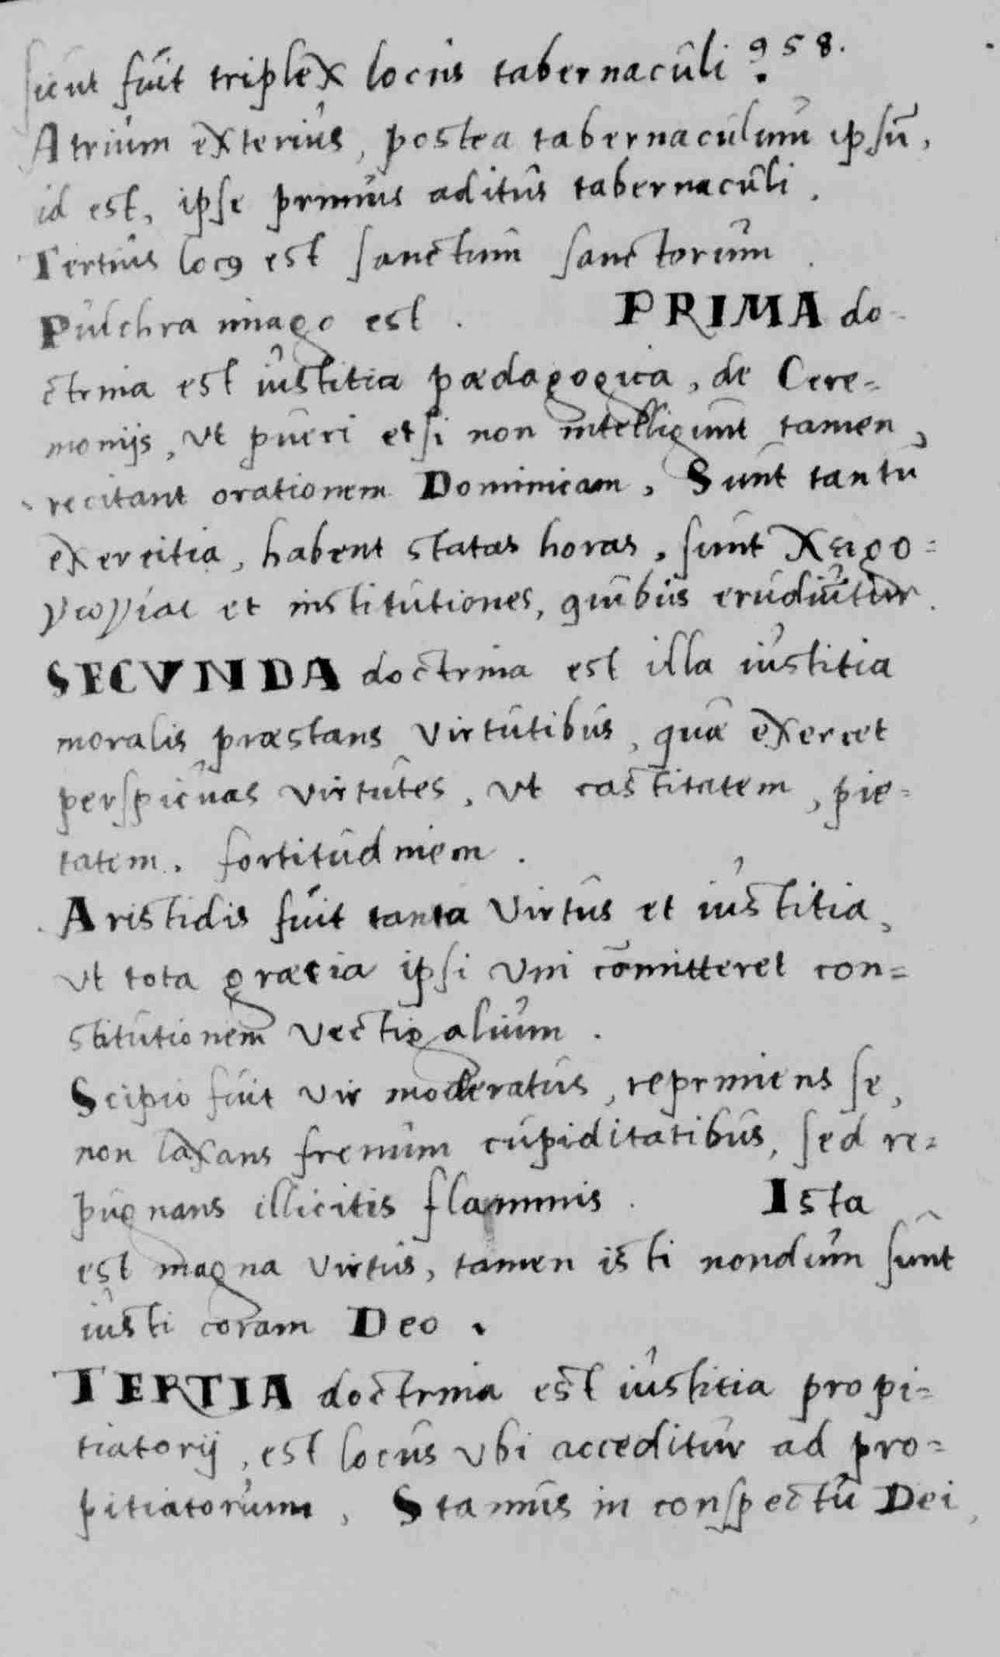 sicut fuit triplex locus tabernaculi. 958.
Atrium exterius, postea tabernaculum ipsū,
id est, ipse primus aditus tabernaculi.
Tertius locꝯ est sanctum sanctorum.
Pulchra imago est. PRIMA do-
ctrina est iustitia pædagogica, de Cere=
monijs, vt pueri etsi non intelligunt tamen,
recitant orationem Dominicam, Sunt tantū
exercitia, habent statas horas, sunt χειρο=
γωγίαι et institutiones, quibus erudiūtur.
SECVNDA doctrina est illa iustitia
moralis præstans virtutibus, quæ exercet
perspicuas virtutes, vt castitatem, pie=
tatem, fortitudinem.
Aristidis fuit tanta virtus et iustitia,
vt tota græcia ipsi vni cōmitteret con=
stitutionem vectigalium.
Scipio fuit vir moderatus, reprimens se,
non laxans frenum cupiditatibus, sed re=
pugnans illicitis flammis. Ista
est magna virtus, tamen isti nondum sunt
iusti coram Deo.
TERTIA doctrina est iustitia propi=
tiatorij, est locus vbi acceditur ad pro=
pitiatorium, Stamus in conspectu Dei,